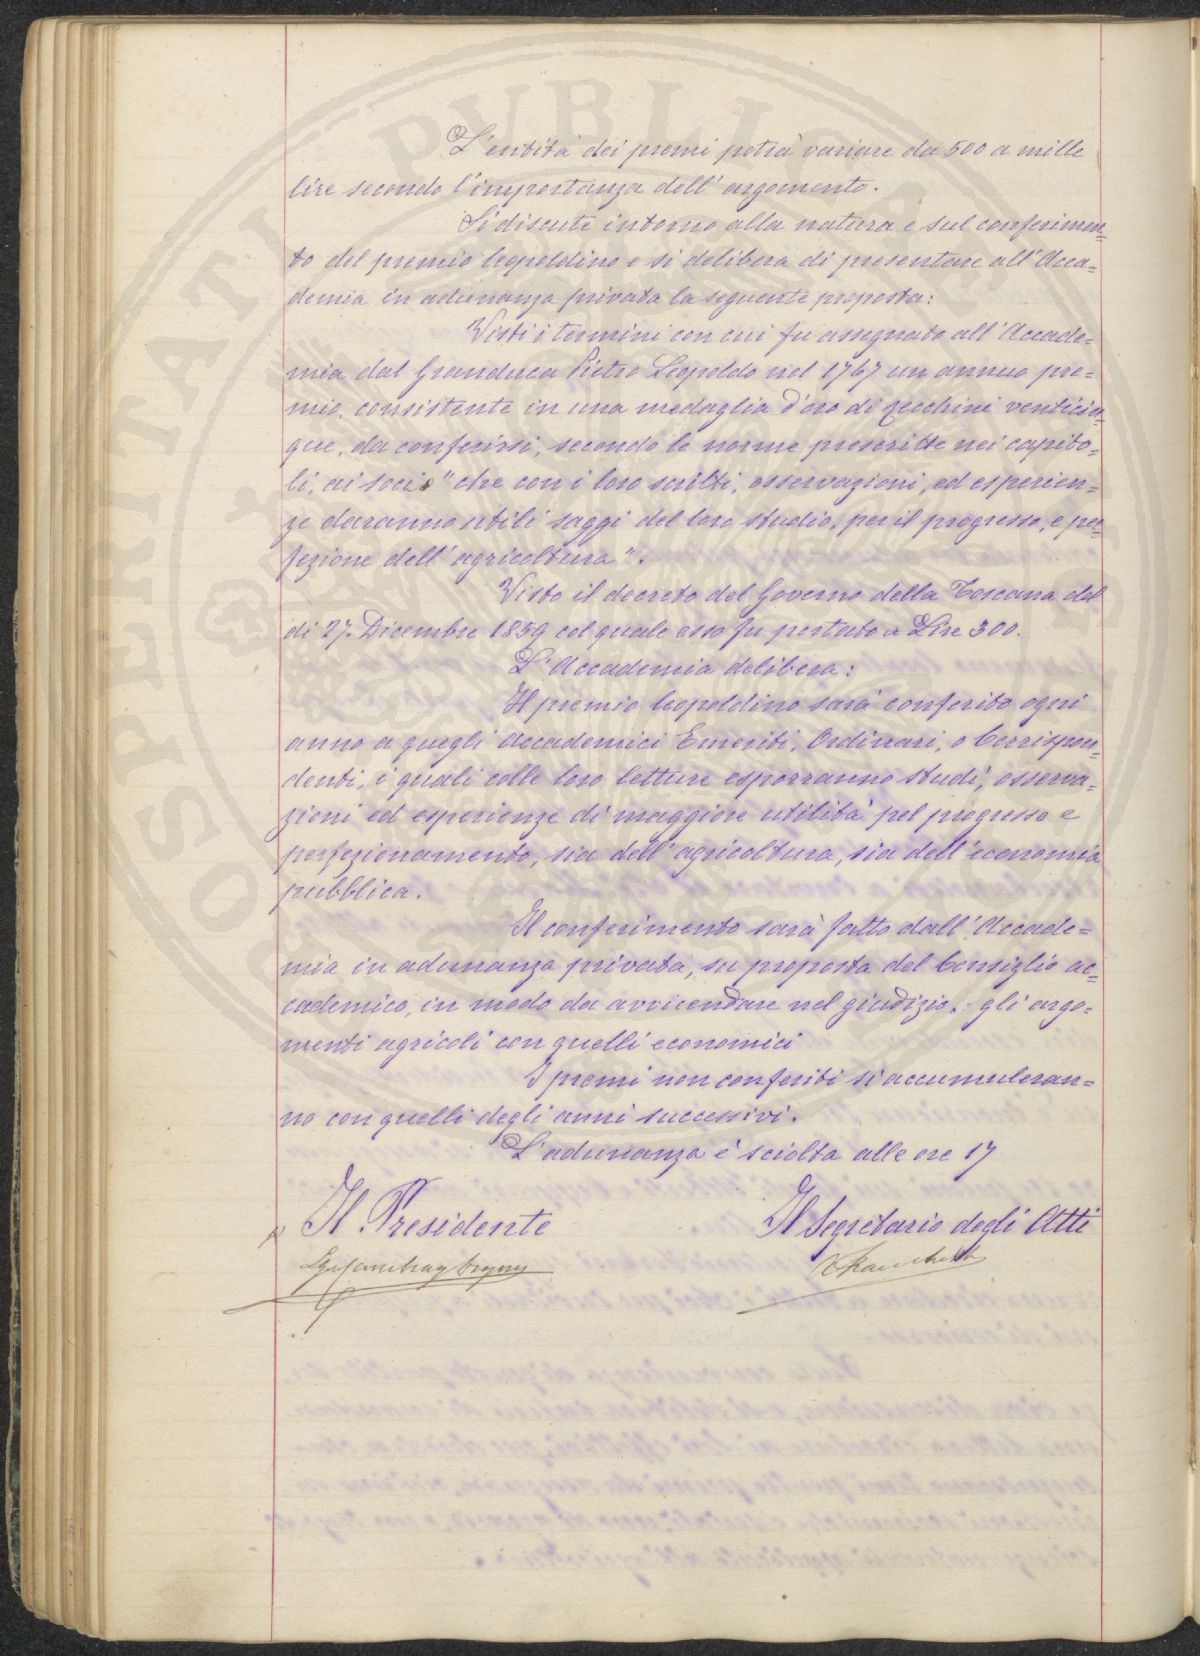 L'entità dei premi potrà variare da 500 a mille
lire secondo l'importanza dell'argomento.
Si discute intorno alla natura e sul conferimen=
to del premio leopoldino e si delibera di presentare all'Acca=
demia in adunanza privata la seguente proposta:
Visti i termini con cui fu assegnato all'Accade=
mia dal Granduca Pietro Leopoldo nel 1767 un annuo pre=
mio, consistente in una medaglia d'oro di zecchini venticin=
que, da conferirsi, secondo le norme prescritte nei capito=
li, ai soci "che con i loro scritti, osservazioni, ed esperien=
ze daranno utili saggi del loro studio, per il progresso, e per=
fezione dell'agricoltura".
Visto il decreto del Governo della Toscana del
dì 27. Dicembre 1859 col quale esso fu portato a Lire 300.
L'Accademia delibera:
Il premio leopoldino sarà conferito ogni
anno a quegli Accademici Emeriti, Ordinari, o Corrispon=
denti, i quali colle loro letture esporranno studi, osserva=
zioni ed esperienze di maggiore utilità pel progresso e
perfezionamento, sia dell'agricoltura, sia dell'economia
pubblica.
Il conferimento sarà fatto dall'Accade=
mia in adunanza privata, su proposta del Consiglio ac=
cademico, in modo da avvicendare nel giudizio, gli argo=
menti agricoli con quelli economici
I premi non conferiti si accumuleran=
no con quelli degli anni successivi.
L'adunanza è sciolta alle ore 17
Il Presidente Il Segretario degli Atti